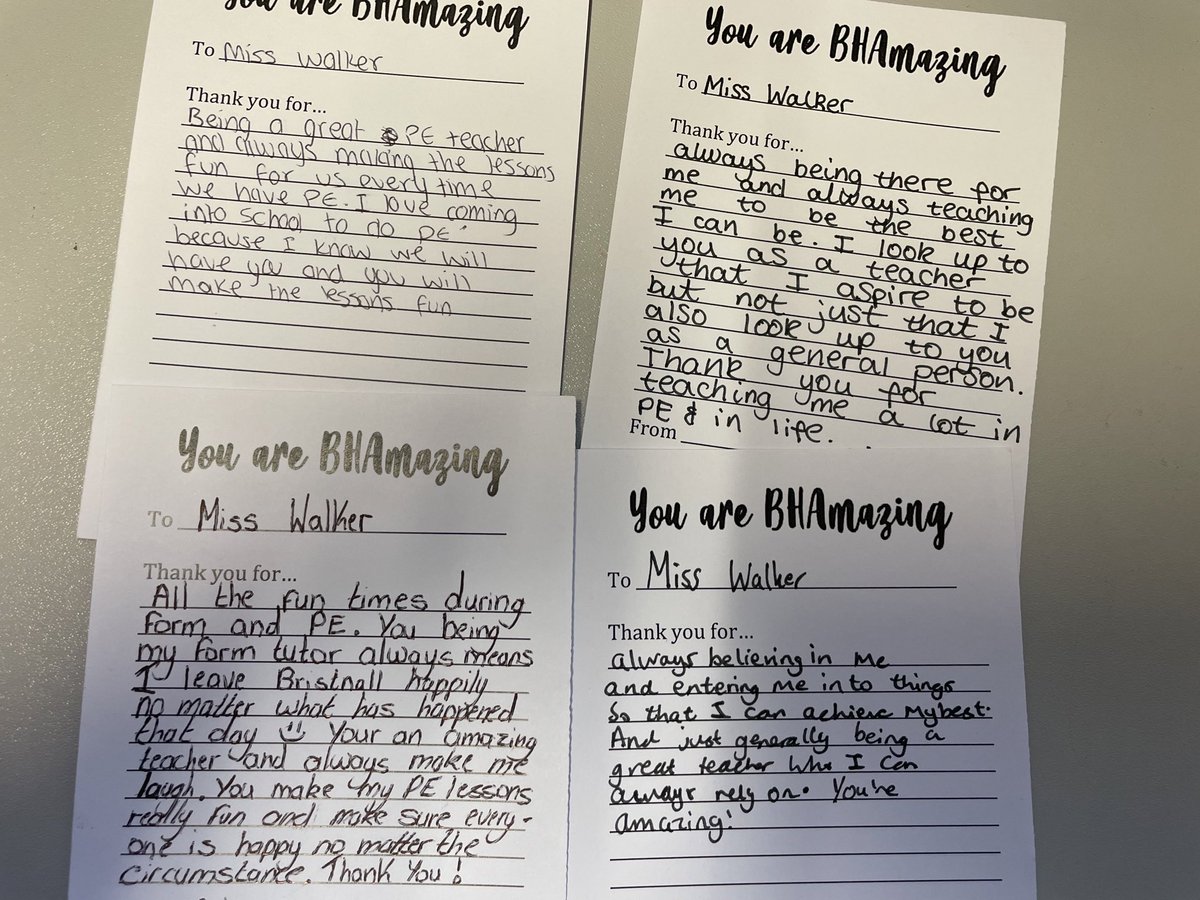 You are BHAmazing
To Miss Walker
Thank you for...
Being a great PE teacher
and always making the lessons
fun for us every time
we have PE. I love coming
into school to do PE
because I know we will
have you and you will
make the lessons fun
You are BHAmazing
To Miss Walker
Thank you for...
always being there for
me and always teaching
me to be the best
I can be. I look up to
you as a teacher
that I aspire to be
but not just that I
also look up to you
as a general person.
Thank you for
teaching me a lot in
PE & in life.
From
You are BHAmazing
To Miss Walker
Thank you for...
All the fun times during
form and PE. You being
my form tutor always means
I leave Bristnall happily
no matter what has happened
that day Your an amazing
teacher and always make me
laugh. You make my PE lessons
really fun and make sure every-
one is happy no matter the
circumstance. Thank You!
You are BHAmazing
To Miss Walker
Thank you for...
always believing in me
and entering me into things
so that I can achieve my best.
And just generally being a
great teacher who I can
always rely on. You're
amazing!